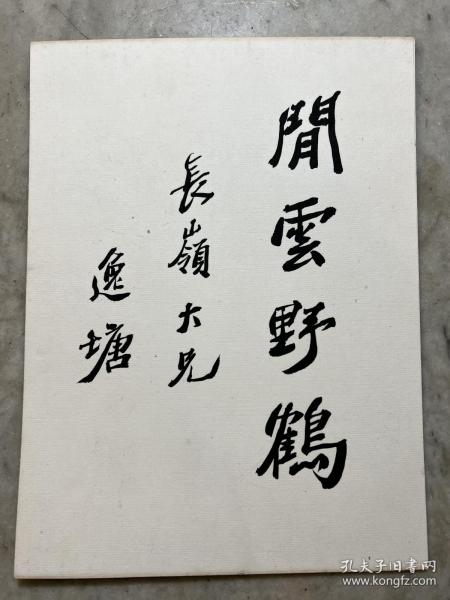 閒雲野鶴
長嶺大兄
逸塘
孔夫子旧书网
www.kongfz.com